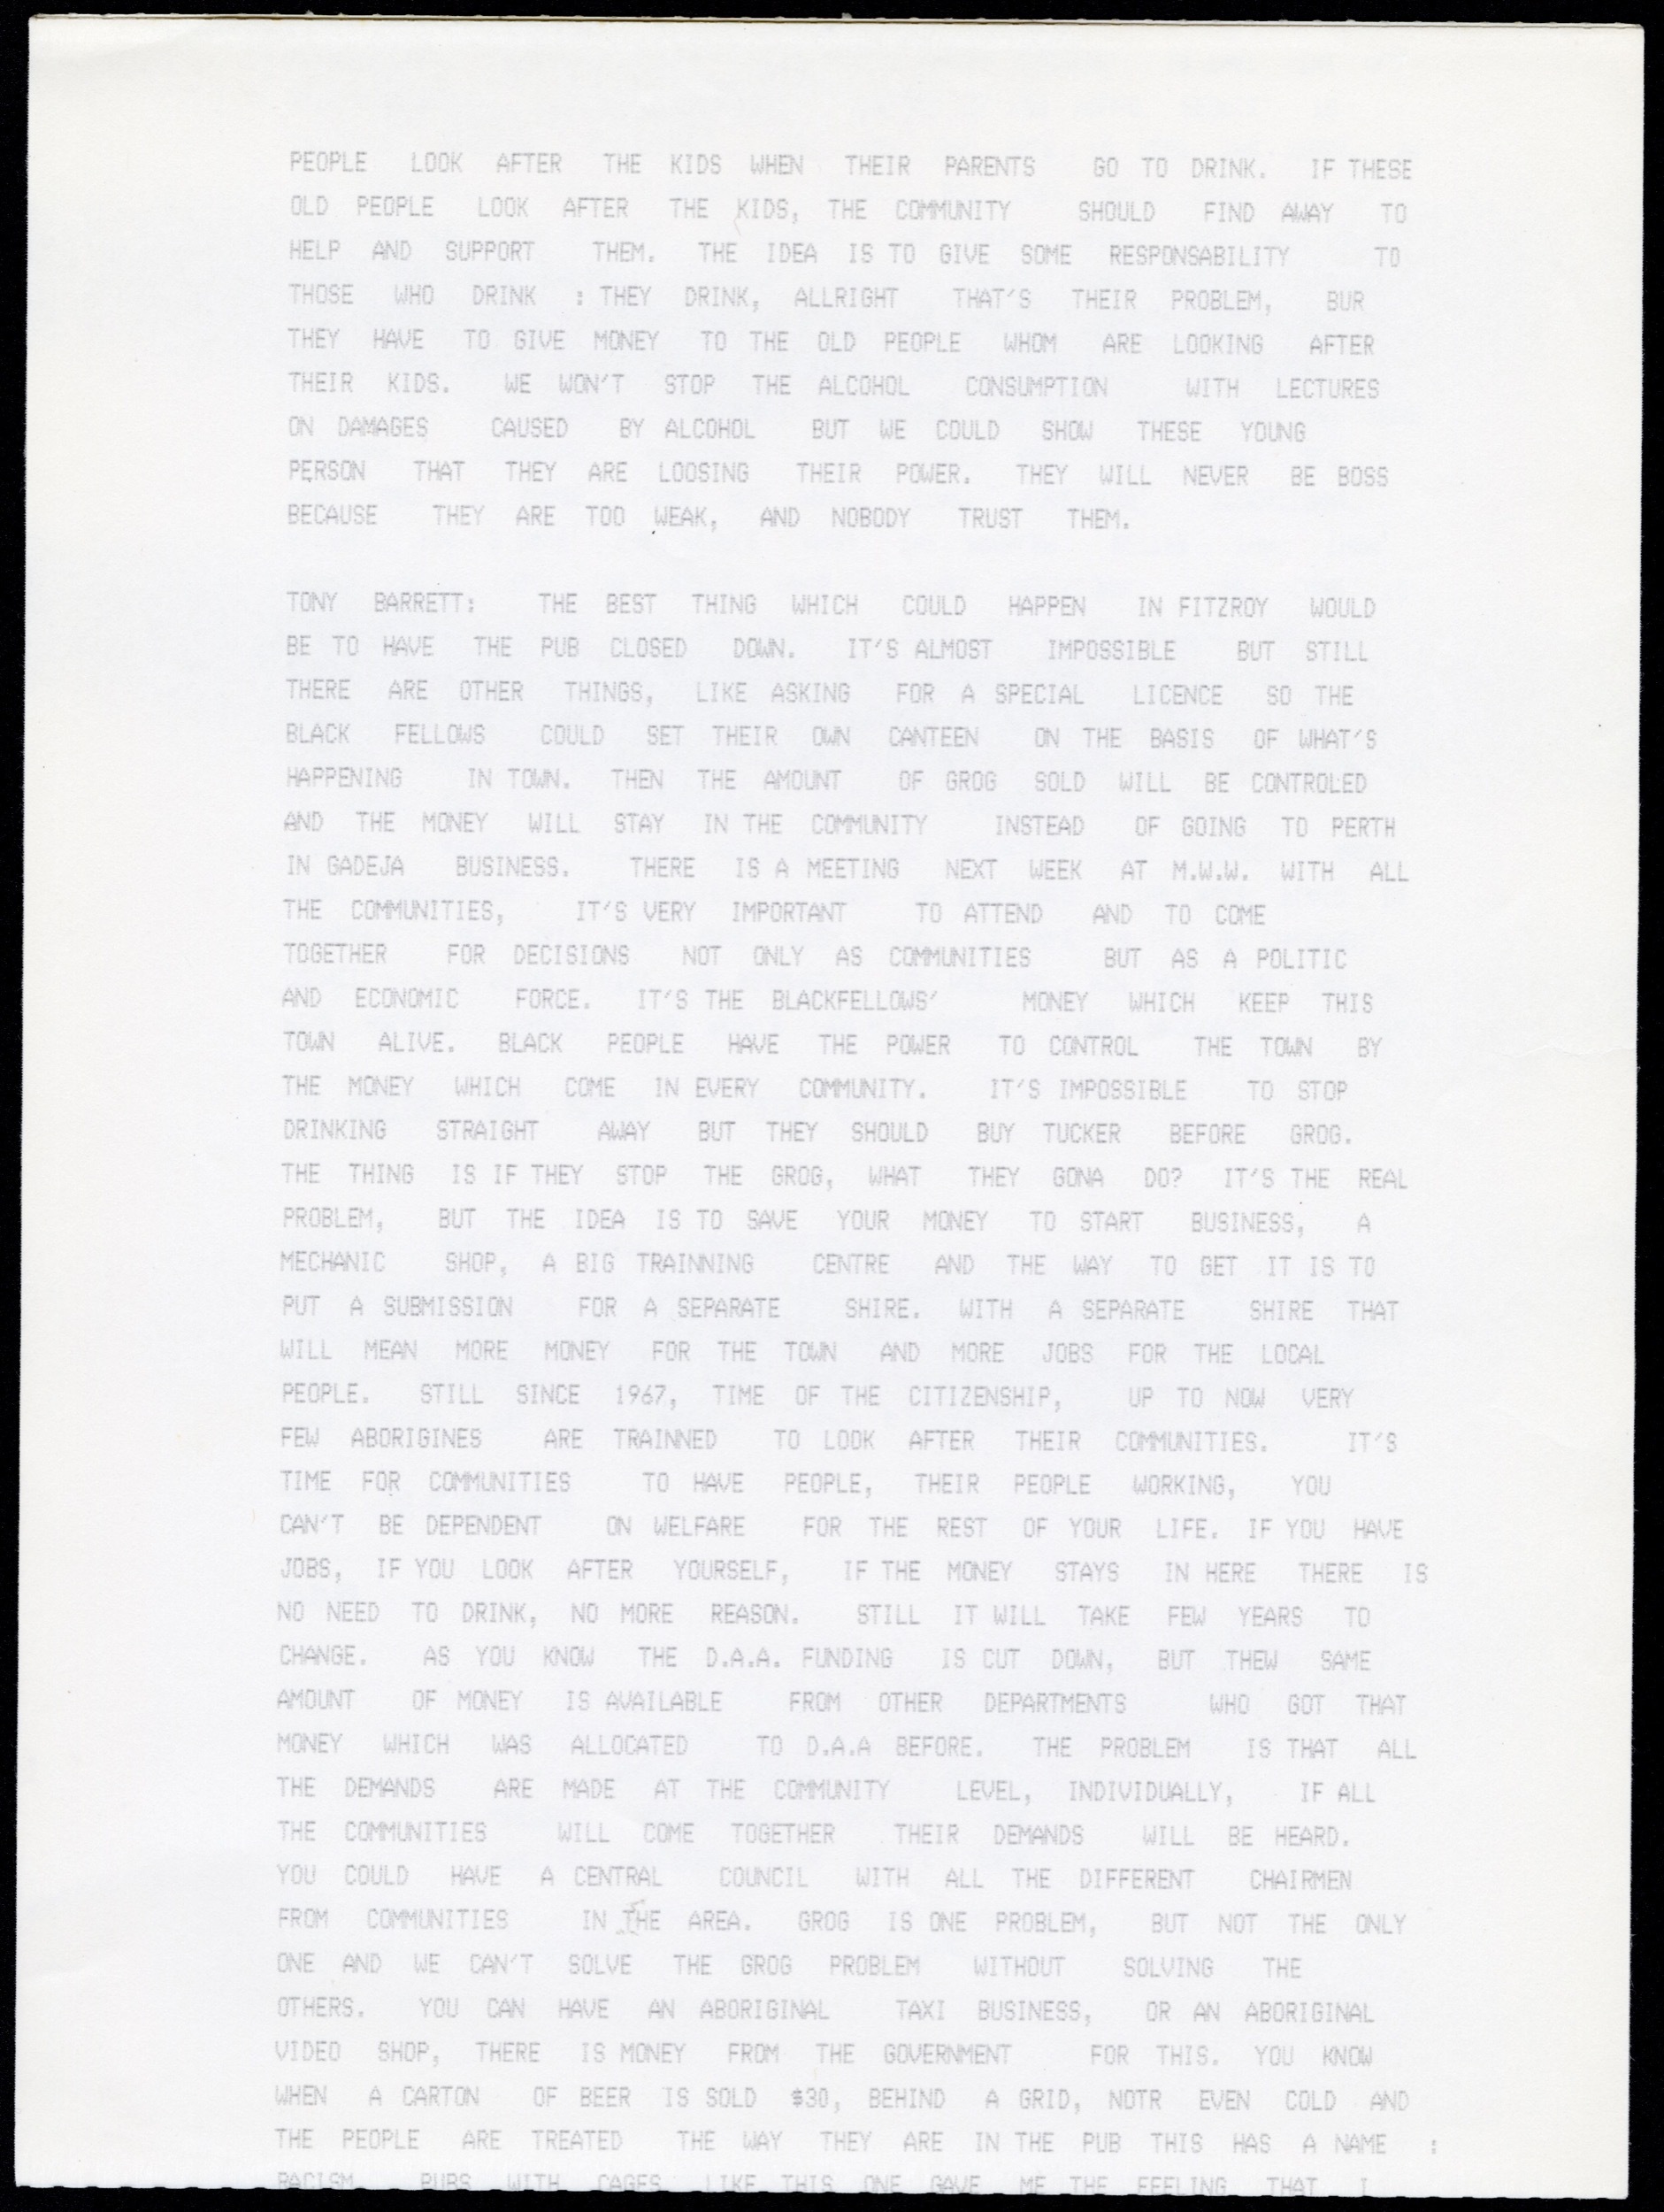 PEOPLE LOOK AFTER THE KIDS WHEN THEIR PARENTS GO TO DRINK. IF THESE
OLD PEOPLE LOOK AFTER THE KIDS, THE COMMUNITY SHOULD FIND AWAY TO
HELP AND SUPPORT THEM. THE IDEA IS TO GIVE SOME RESPONSABILITY TO
THOSE WHO DRINK : THEY DRINK, ALLRIGHT THAT'S THEIR PROBLEM, BUR
THEY HAVE TO GIVE MONEY TO THE OLD PEOPLE WHOM ARE LOOKING AFTER
THEIR KIDS. WE WON'T STOP THE ALCOHOL CONSUMPTION WITH LECTURES
ON DAMAGES CAUSED BY ALCOHOL BUT WE COULD SHOW THESE YOUNG
PERSON THAT THEY ARE LOOSING THEIR POWER. THEY WILL NEVER BE BOSS
BECAUSE THEY ARE TOO WEAK, AND NOBODY TRUST THEM.
TONY BARRETT: THE BEST THING WHICH COULD HAPPEN IN FITZROY WOULD
BE TO HAVE THE PUB CLOSED DOWN. IT'S ALMOST IMPOSSIBLE BUT STILL
THERE ARE OTHER THINGS, LIKE ASKING FOR A SPECIAL LICENCE SO THE
BLACK FELLOWS COULD SET THEIR OWN CANTEEN ON THE BASIS OF WHAT'S
HAPPENING IN TOWN. THEN THE AMOUNT OF GROG SOLD WILL BE CONTROLED
AND THE MONEY WILL STAY IN THE COMMUNITY INSTEAD OF GOING TO PERTH
IN GADEJA BUSINESS. THERE IS A MEETING NEXT WEEK AT M.W.W. WITH ALL
THE COMMUNITIES, IT'S VERY IMPORTANT TO ATTEND AND TO COME
TOGETHER FOR DECISIONS NOT ONLY AS COMMUNITIES BUT AS A POLITIC
AND ECONOMIC FORCE. IT'S THE BLACKFELLOWS' MONEY WHICH KEEP THIS
TOWN ALIVE. BLACK PEOPLE HAVE THE POWER TO CONTROL THE TOWN BY
THE MONEY WHICH COME IN EVERY COMMUNITY. IT'S IMPOSSIBLE TO STOP
DRINKING STRAIGHT AWAY BUT THEY SHOULD BUY TUCKER BEFORE GROG.
THE THING IS IF THEY STOP THE GROG, WHAT THEY GONA DO? IT'S THE REAL
PROBLEM, BUT THE IDEA IS TO SAVE YOUR MONEY TO START BUSINESS, A
MECHANIC SHOP, A BIG TRAINNING CENTRE AND THE WAY TO GET IT IS TO
PUT A SUBMISSION FOR A SEPARATE SHIRE. WITH A SEPARATE SHIRE THAT
WILL MEAN MORE MONEY FOR THE TOWN AND MORE JOBS FOR THE LOCAL
PEOPLE. STILL SINCE 1967, TIME OF THE CITIZENSHIP, UP TO NOW VERY
FEW ABORIGINES ARE TRAINNED TO LOOK AFTER THEIR COMMUNITIES. IT'S
TIME FOR COMMUNITIES TO HAVE PEOPLE, THEIR PEOPLE WORKING, YOU
CAN'T BE DEPENDENT ON WELFARE FOR THE REST OF YOUR LIFE. IF YOU HAVE
JOBS, IF YOU LOOK AFTER YOURSELF, IF THE MONEY STAYS IN HERE THERE IS
NO NEED TO DRINK, NO MORE REASON. STILL IT WILL TAKE FEW YEARS TO
CHANGE. AS YOU KNOW THE D.A.A. FUNDING IS CUT DOWN, BUT THEW SAME
AMOUNT OF MONEY IS AVAILABLE FROM OTHER DEPARTMENTS WHO GOT THAT
MONEY WHICH WAS ALLOCATED TO D.A.A BEFORE. THE PROBLEM IS THAT ALL
THE DEMANDS ARE MADE AT THE COMMUNITY LEVEL, INDIVIDUALLY, IF ALL
THE COMMUNITIES WILL COME TOGETHER THEIR DEMANDS WILL BE HEARD.
YOU COULD HAVE A CENTRAL COUNCIL WITH ALL THE DIFFERENT CHAIRMEN
FROM COMMUNITIES IN THE AREA. GROG IS ONE PROBLEM, BUT NOT THE ONLY
ONE AND WE CAN'T SOLVE THE GROG PROBLEM WITHOUT SOLVING THE
OTHERS. YOU CAN HAVE AN ABORIGINAL TAXI BUSINESS, OR AN ABORIGINAL
VIDEO SHOP, THERE IS MONEY FROM THE GOVERNMENT FOR THIS. YOU KNOW
WHEN A CARTON OF BEER IS SOLD $30, BEHIND A GRID, NOTR EVEN COLD AND
THE PEOPLE ARE TREATED THE WAY THEY ARE IN THE PUB THIS HAS A NAME :
RACISM. PUBS WITH CAGES LIKE THIS ONE GAVE ME THE FEELING THAT I